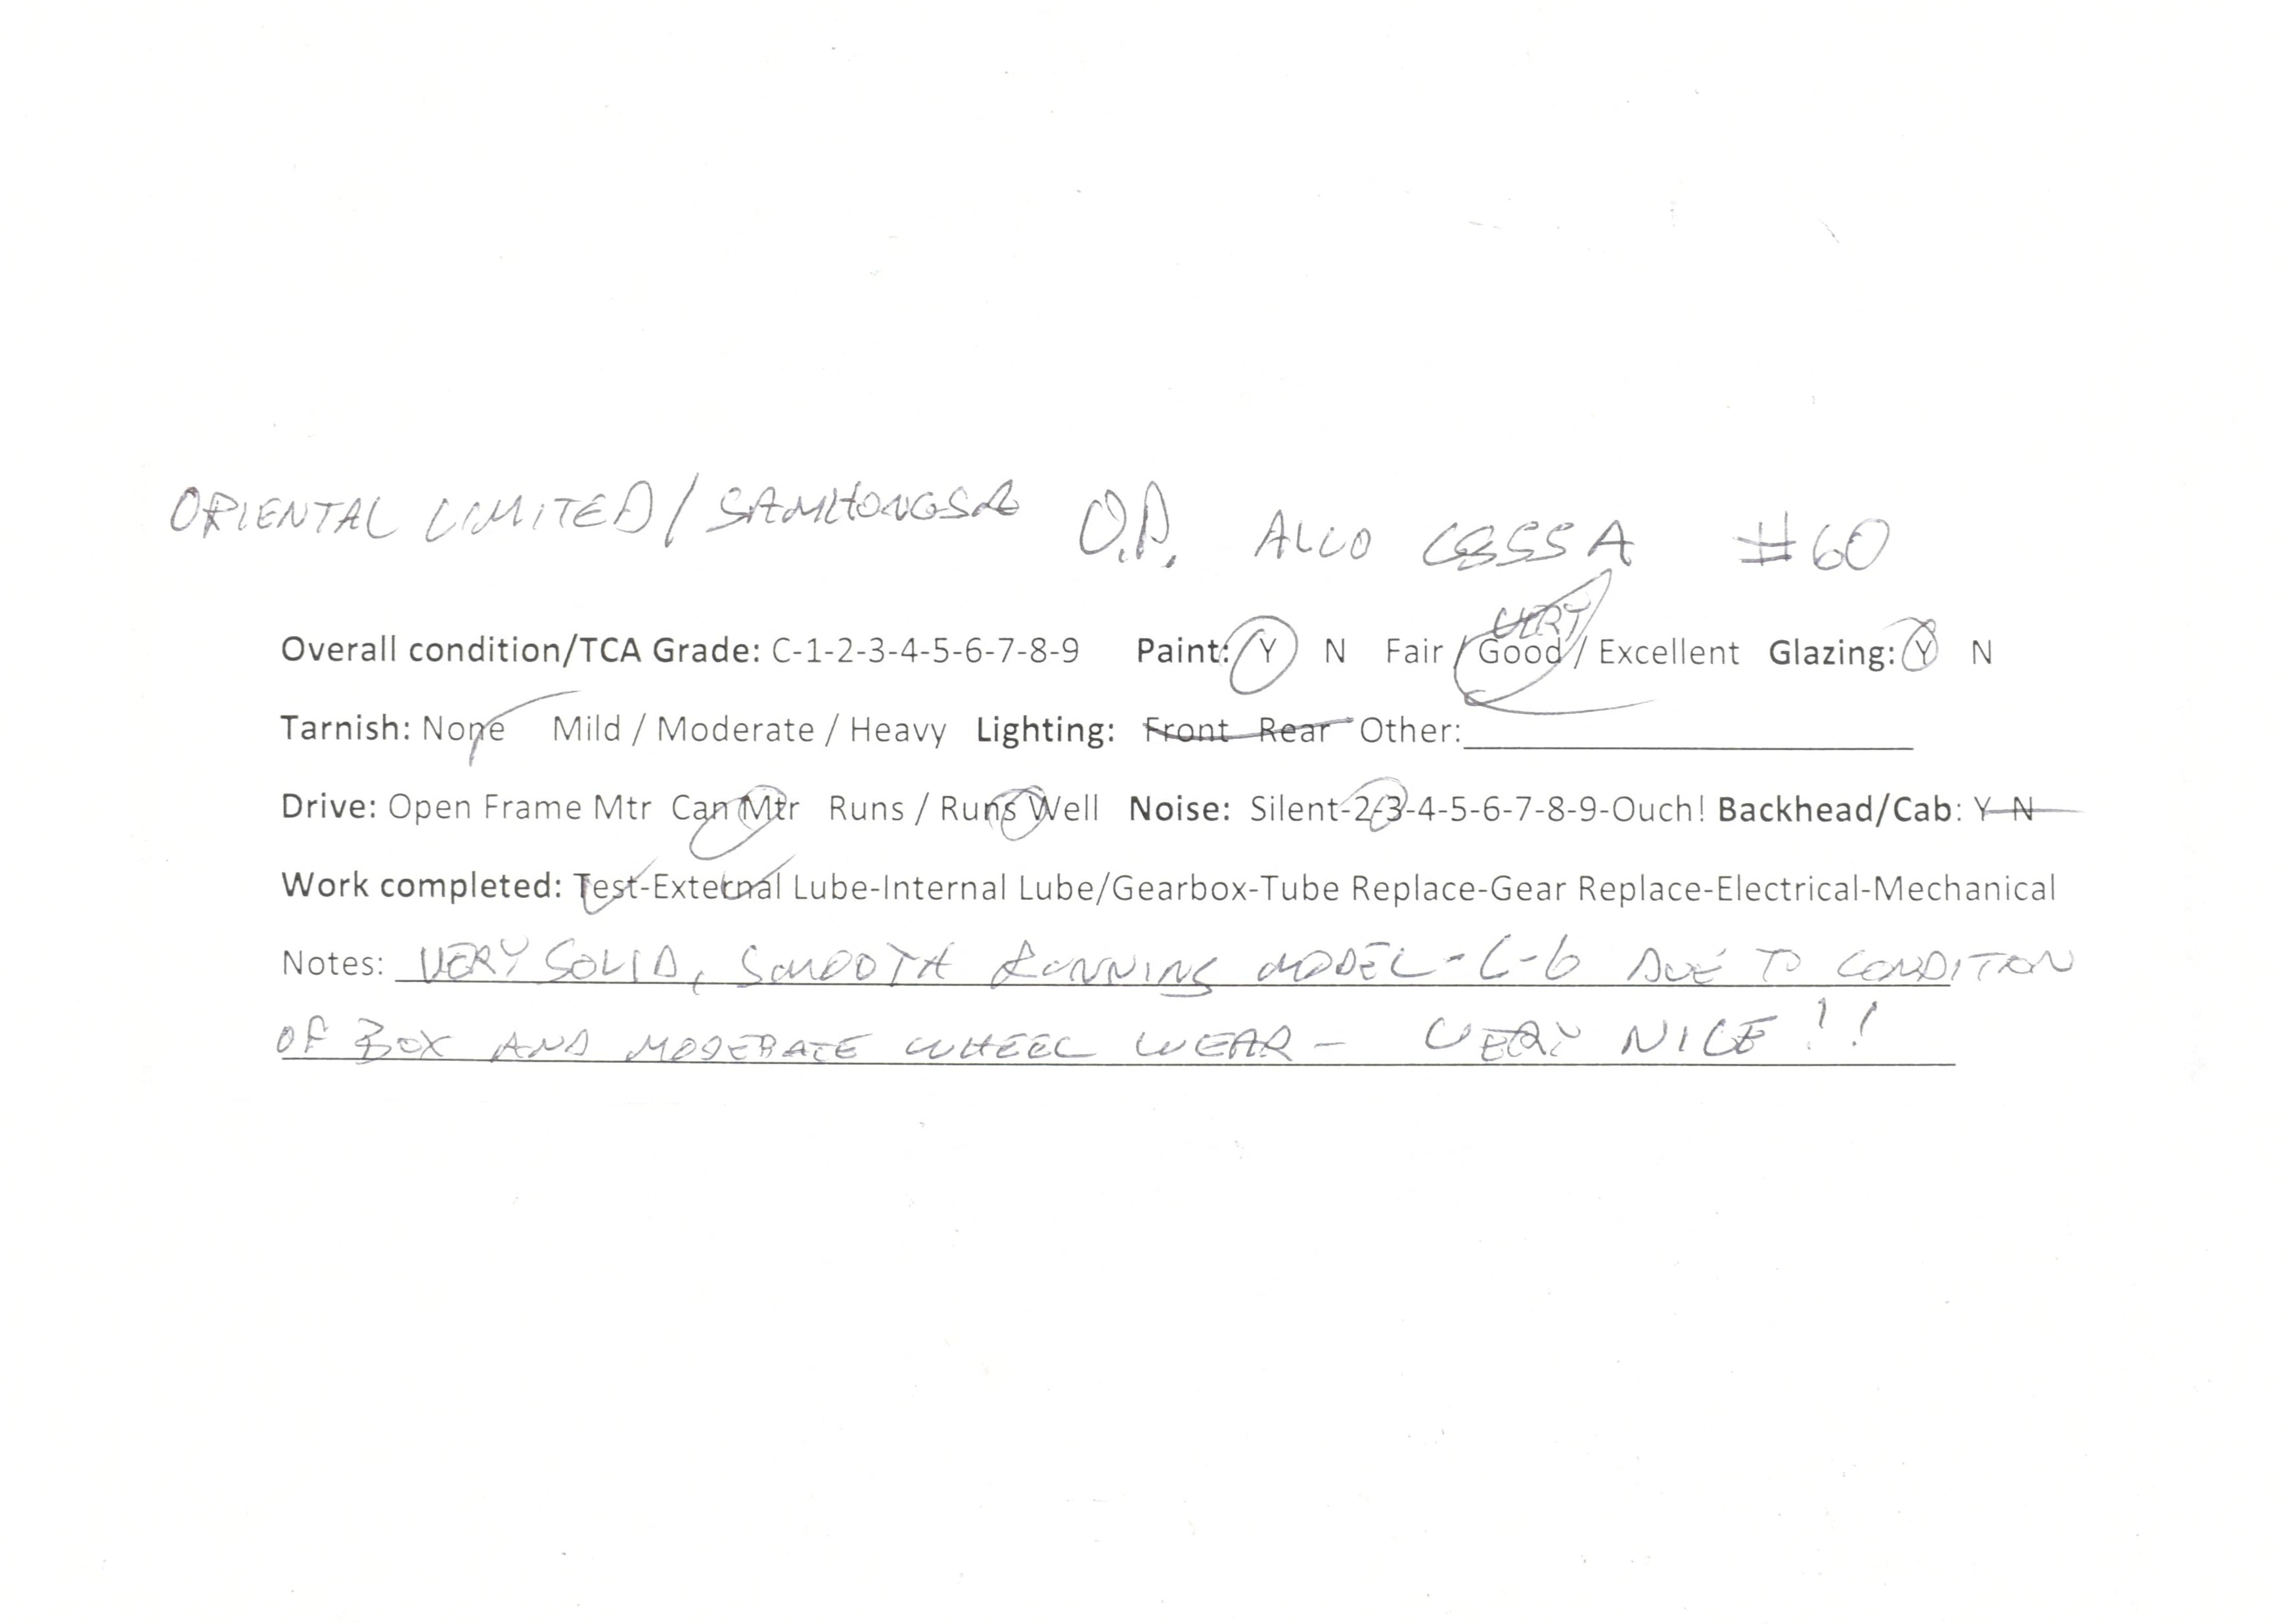 ORIENTAL LIMITED / SAMHONGSA O.P. ALCO C855A #60
VERY
Overall condition/TCA Grade: C-1-2-3-4-5-6-7-8-9 Paint: Y N Fair / Good / Excellent Glazing: Y N
Tarnish: None Mild / Moderate / Heavy Lighting: Front Rear Other:
Drive: Open Frame Mtr Can Mtr Runs / Runs Well Noise: Silent-2-3-4-5-6-7-8-9-Ouch! Backhead/Cab: Y N
Work completed: Test-External Lube-Internal Lube/Gearbox-Tube Replace-Gear Replace-Electrical-Mechanical
Notes: VERY SOLID, SMOOTH RUNNING MODEL - C-6 DUE TO CONDITION
OF BOX AND MODERATE WHEEL WEAR - VERY NICE!!